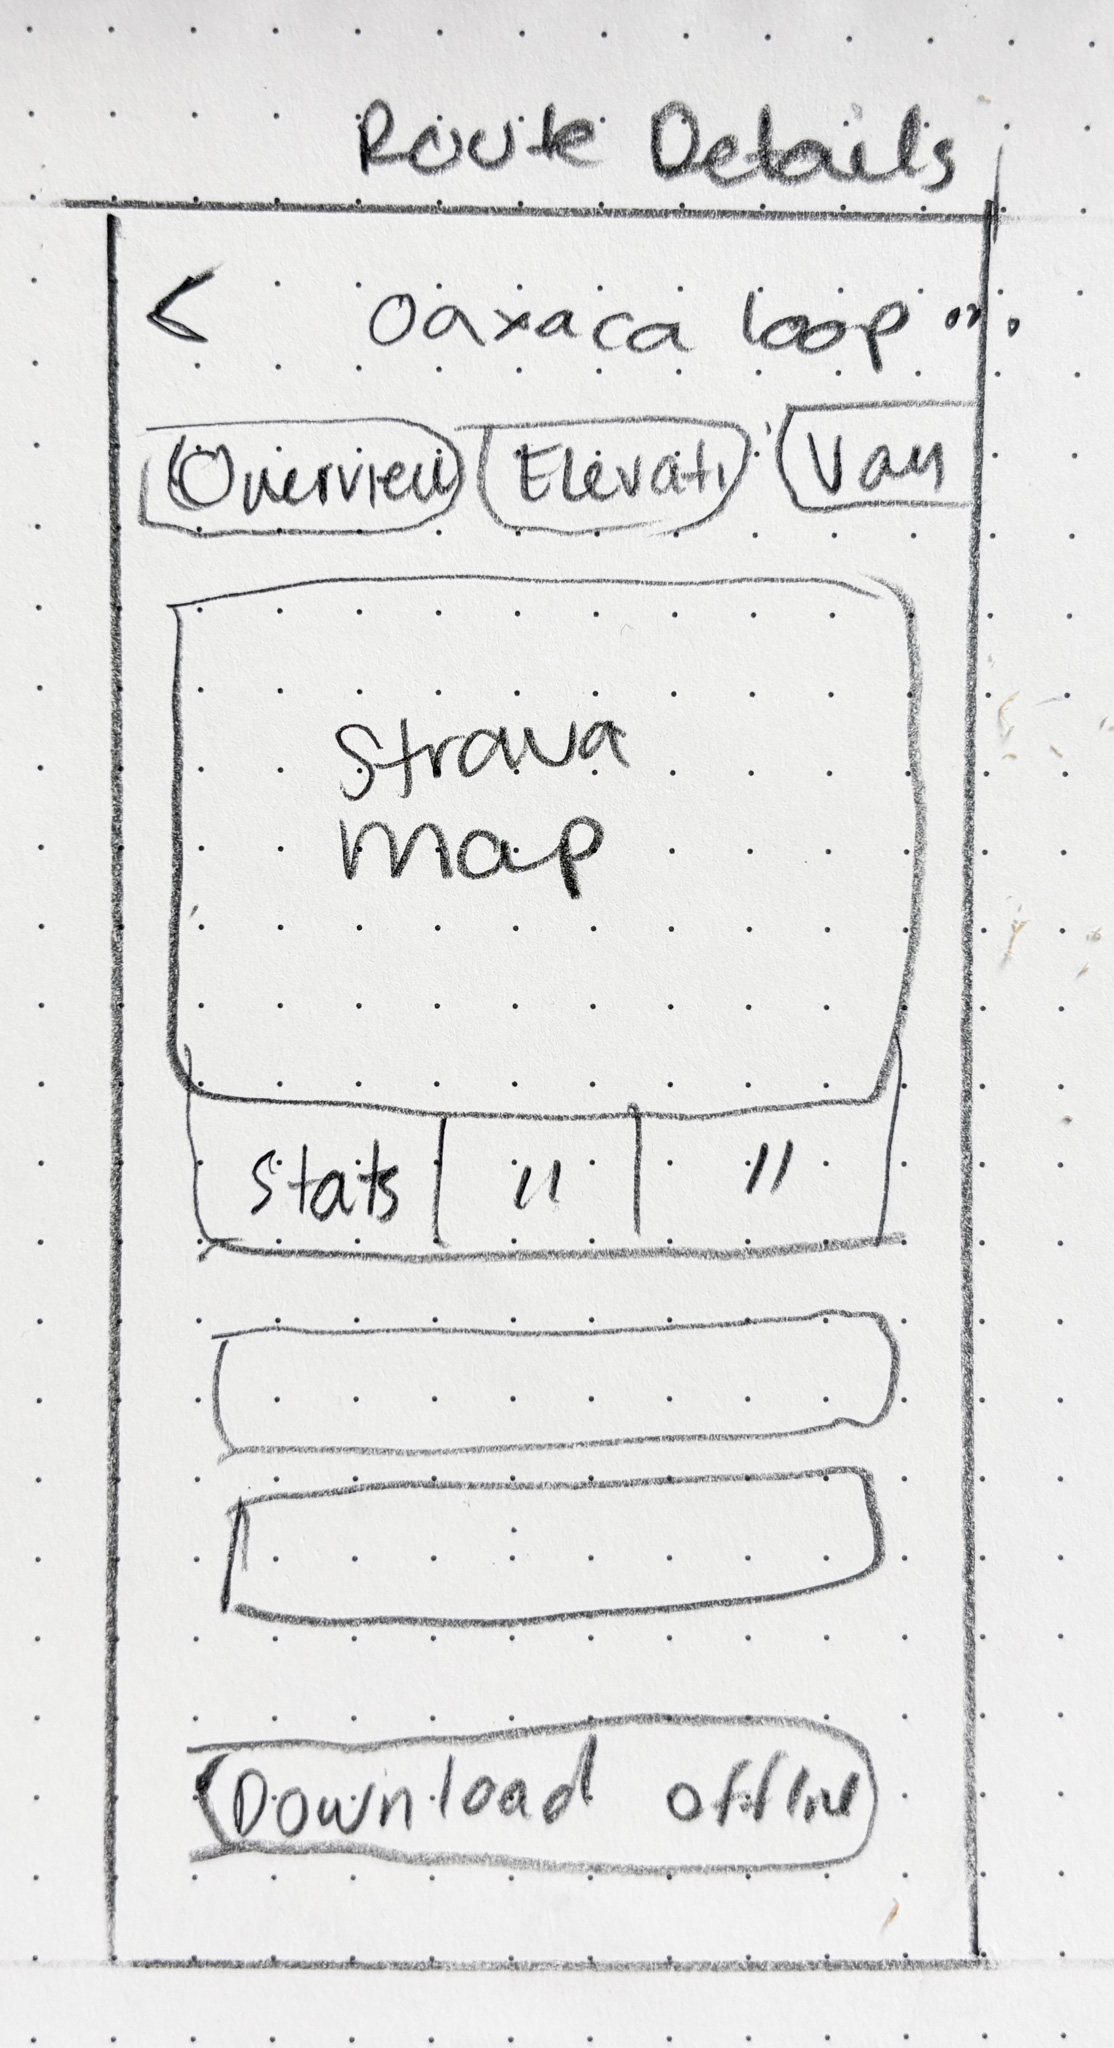 Route Details
< Oaxaca loop ...
Overview Elevati Van
Strava
map
Stats " "
Download offline